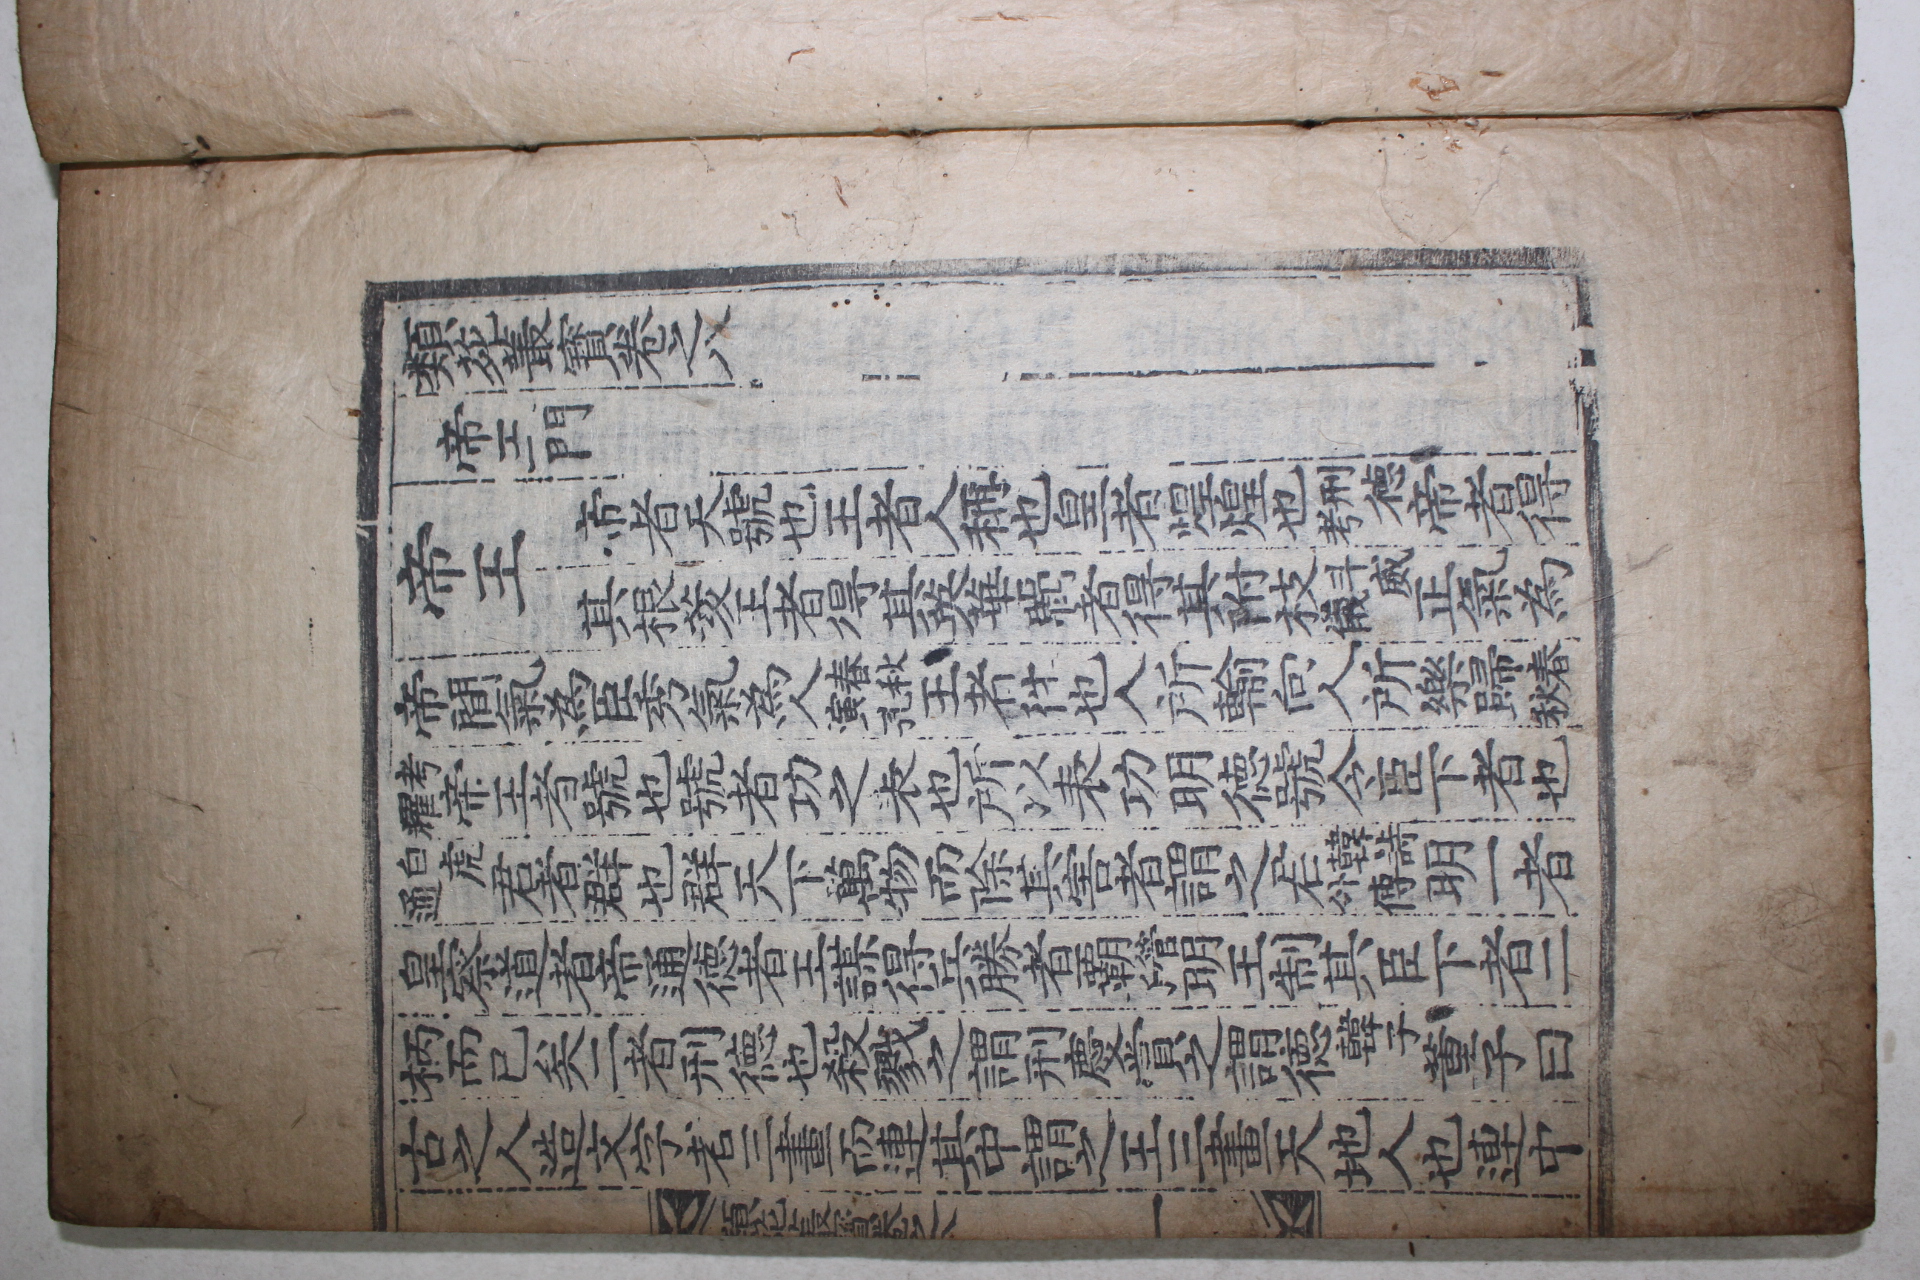 類苑叢寶卷之八
帝王門
帝王 帝者天號也王者人稱也皇者煌煌也刑德考帝者得
其根荄王者得其英華覇者得其附枝斗威儀正氣爲
帝間氣爲臣秀氣爲人春秋演孔王者往也人所輸向人所樂歸春秋
考耀帝王者號也號者功之表也所以表功明德號令臣下者也
白虎通君者群也群天下萬物而除其害者謂之君韓詩外傳明一者
皇察道者帝通德者王謀得兵勝者覇管子明王制其臣下者二
柄而已矣二者刑德也殺戮之謂刑慶賞之謂德韓子董子曰
古之人造文字者三畫而連其中謂之王三畫天地人也連中
類苑叢寶卷之八 一